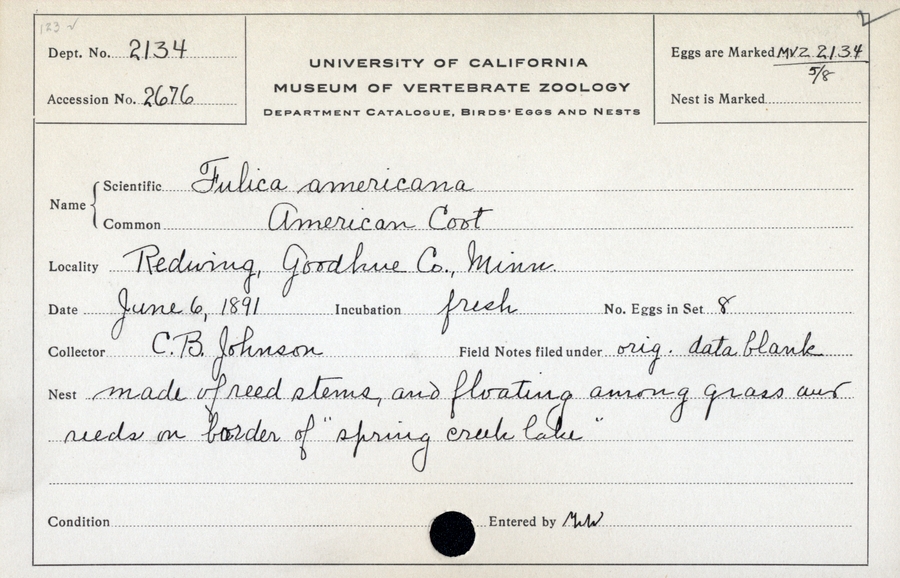 123 ✓
2
Dept. No. 2134
Accession No. 2676
UNIVERSITY OF CALIFORNIA
MUSEUM OF VERTEBRATE ZOOLOGY
DEPARTMENT CATALOGUE, BIRDS' EGGS AND NESTS
Eggs are Marked MVZ 2134
5/8
Nest is Marked
Name
Scientific Fulica americana
Common American Coot
Locality Redwing, Goodhue Co., Minn.
Date June 6, 1891 Incubation fresh No. Eggs in Set 8
Collector C. B. Johnson Field Notes filed under orig. data blank
Nest made of reed stems, and floating among grass and
reeds on border of "spring creek lake"
Condition Entered by